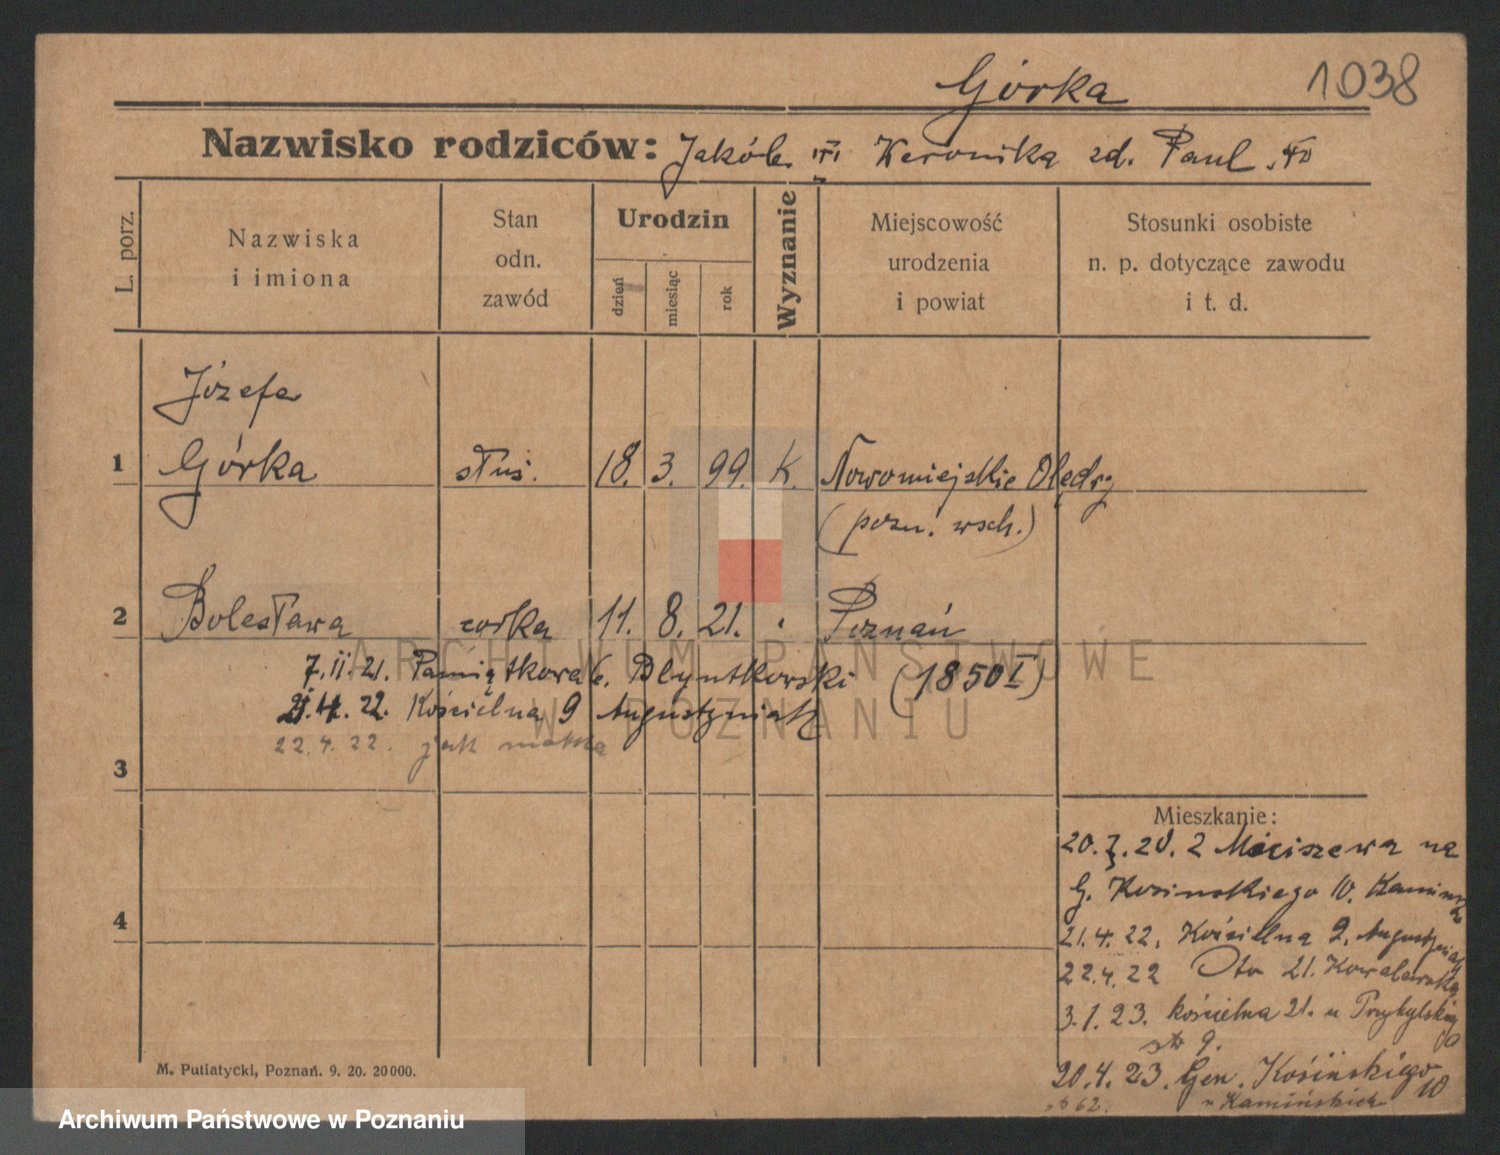 Górka 1038
Nazwisko rodziców: Jakób i Weronika zd. Paul
L. porz.
Nazwiska
i imiona
Stan
odn.
zawód
Urodzin
dzień
miesiąc
rok
Wyznanie
Miejscowość
urodzenia
i powiat
Stosunki osobiste
n. p. dotyczące zawodu
i t. d.
Józefa
1 Górka służ. 18. 3. 99. K. Nowomiejskie Olędry
(pozn. wsch.)
2 Bolesława córka 11. 8. 21. Poznań
7.II.21. Pamiątkowa 6. (1850I)
21.4.22. Kościelna 9 Augustyniak
22.4.22. jak matka
3
4
Mieszkanie:
20. 20. 2 na
G. Kosinskiego 10.
21.4.22. Kościelna 9. Augustyniak
22.4.22 21. Kowalewska
3.1.23. Kościelna 21. u
str 9.
20.4.23. Gen. Kosińskiego 10
u Kamińskich
M. Putiatycki, Poznań. 9. 20. 20000.
ARCHIWUM PAŃSTWOWE
W POZNANIU
Archiwum Państwowe w Poznaniu